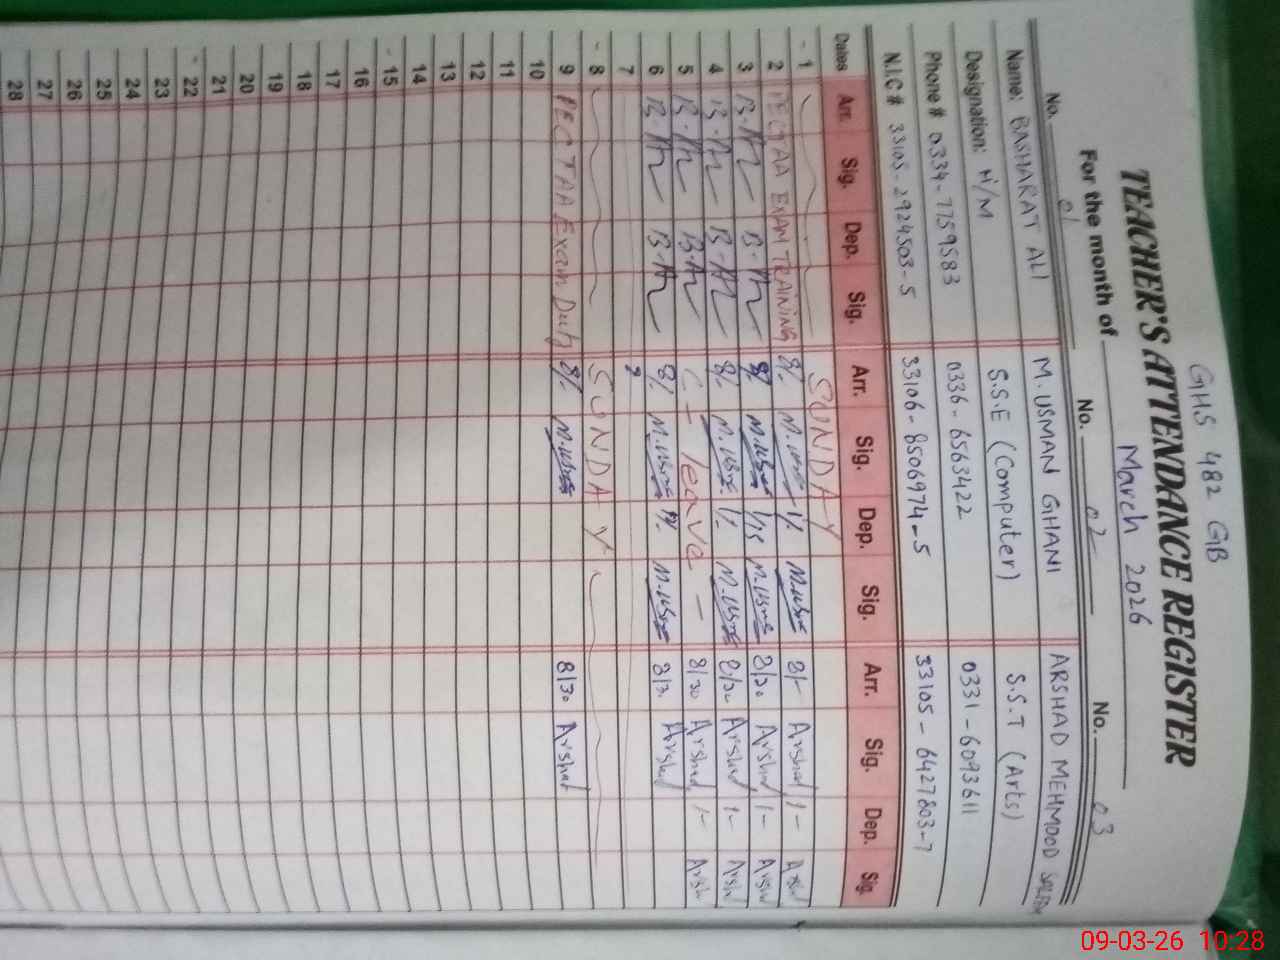 GHS 482 GB
TEACHER'S ATTENDANCE REGISTER
For the month of March 2026
No. 01 No. 02 No. 03
Name: BASHARAT ALI M. USMAN GHANI ARSHAD MEHMOOD
Designation: H/M S.S.E (Computer) S.S.T (Arts)
Phone # 0334-7759583 0336-6563422 0331-6093611
N.I.C # 33105-2924503-5 33106-8506974-5 33105-6427803-7
Dates Arr. Sig. Dep. Sig. Arr. Sig. Dep. Sig. Arr. Sig. Dep. Sig.
1 SUNDAY
2 PECTAA EXAM TRAINING 8/ 1/ 8/- Arshad 1-
3 8/ 1/15 8/20 Arshad 1-
4 8/ 1/ 8/20 Arshad 1-
5 C-leave- 8/30 Arshad 1-
6 8/ 8/30 Arshad
7
8 SUNDAY
9 PECTAA Exam Duty 8/ 8/30 Arshad
10
11
12
13
14
15
16
17
18
19
20
21
22
23
24
25
26
27
28
09-03-26 10:28